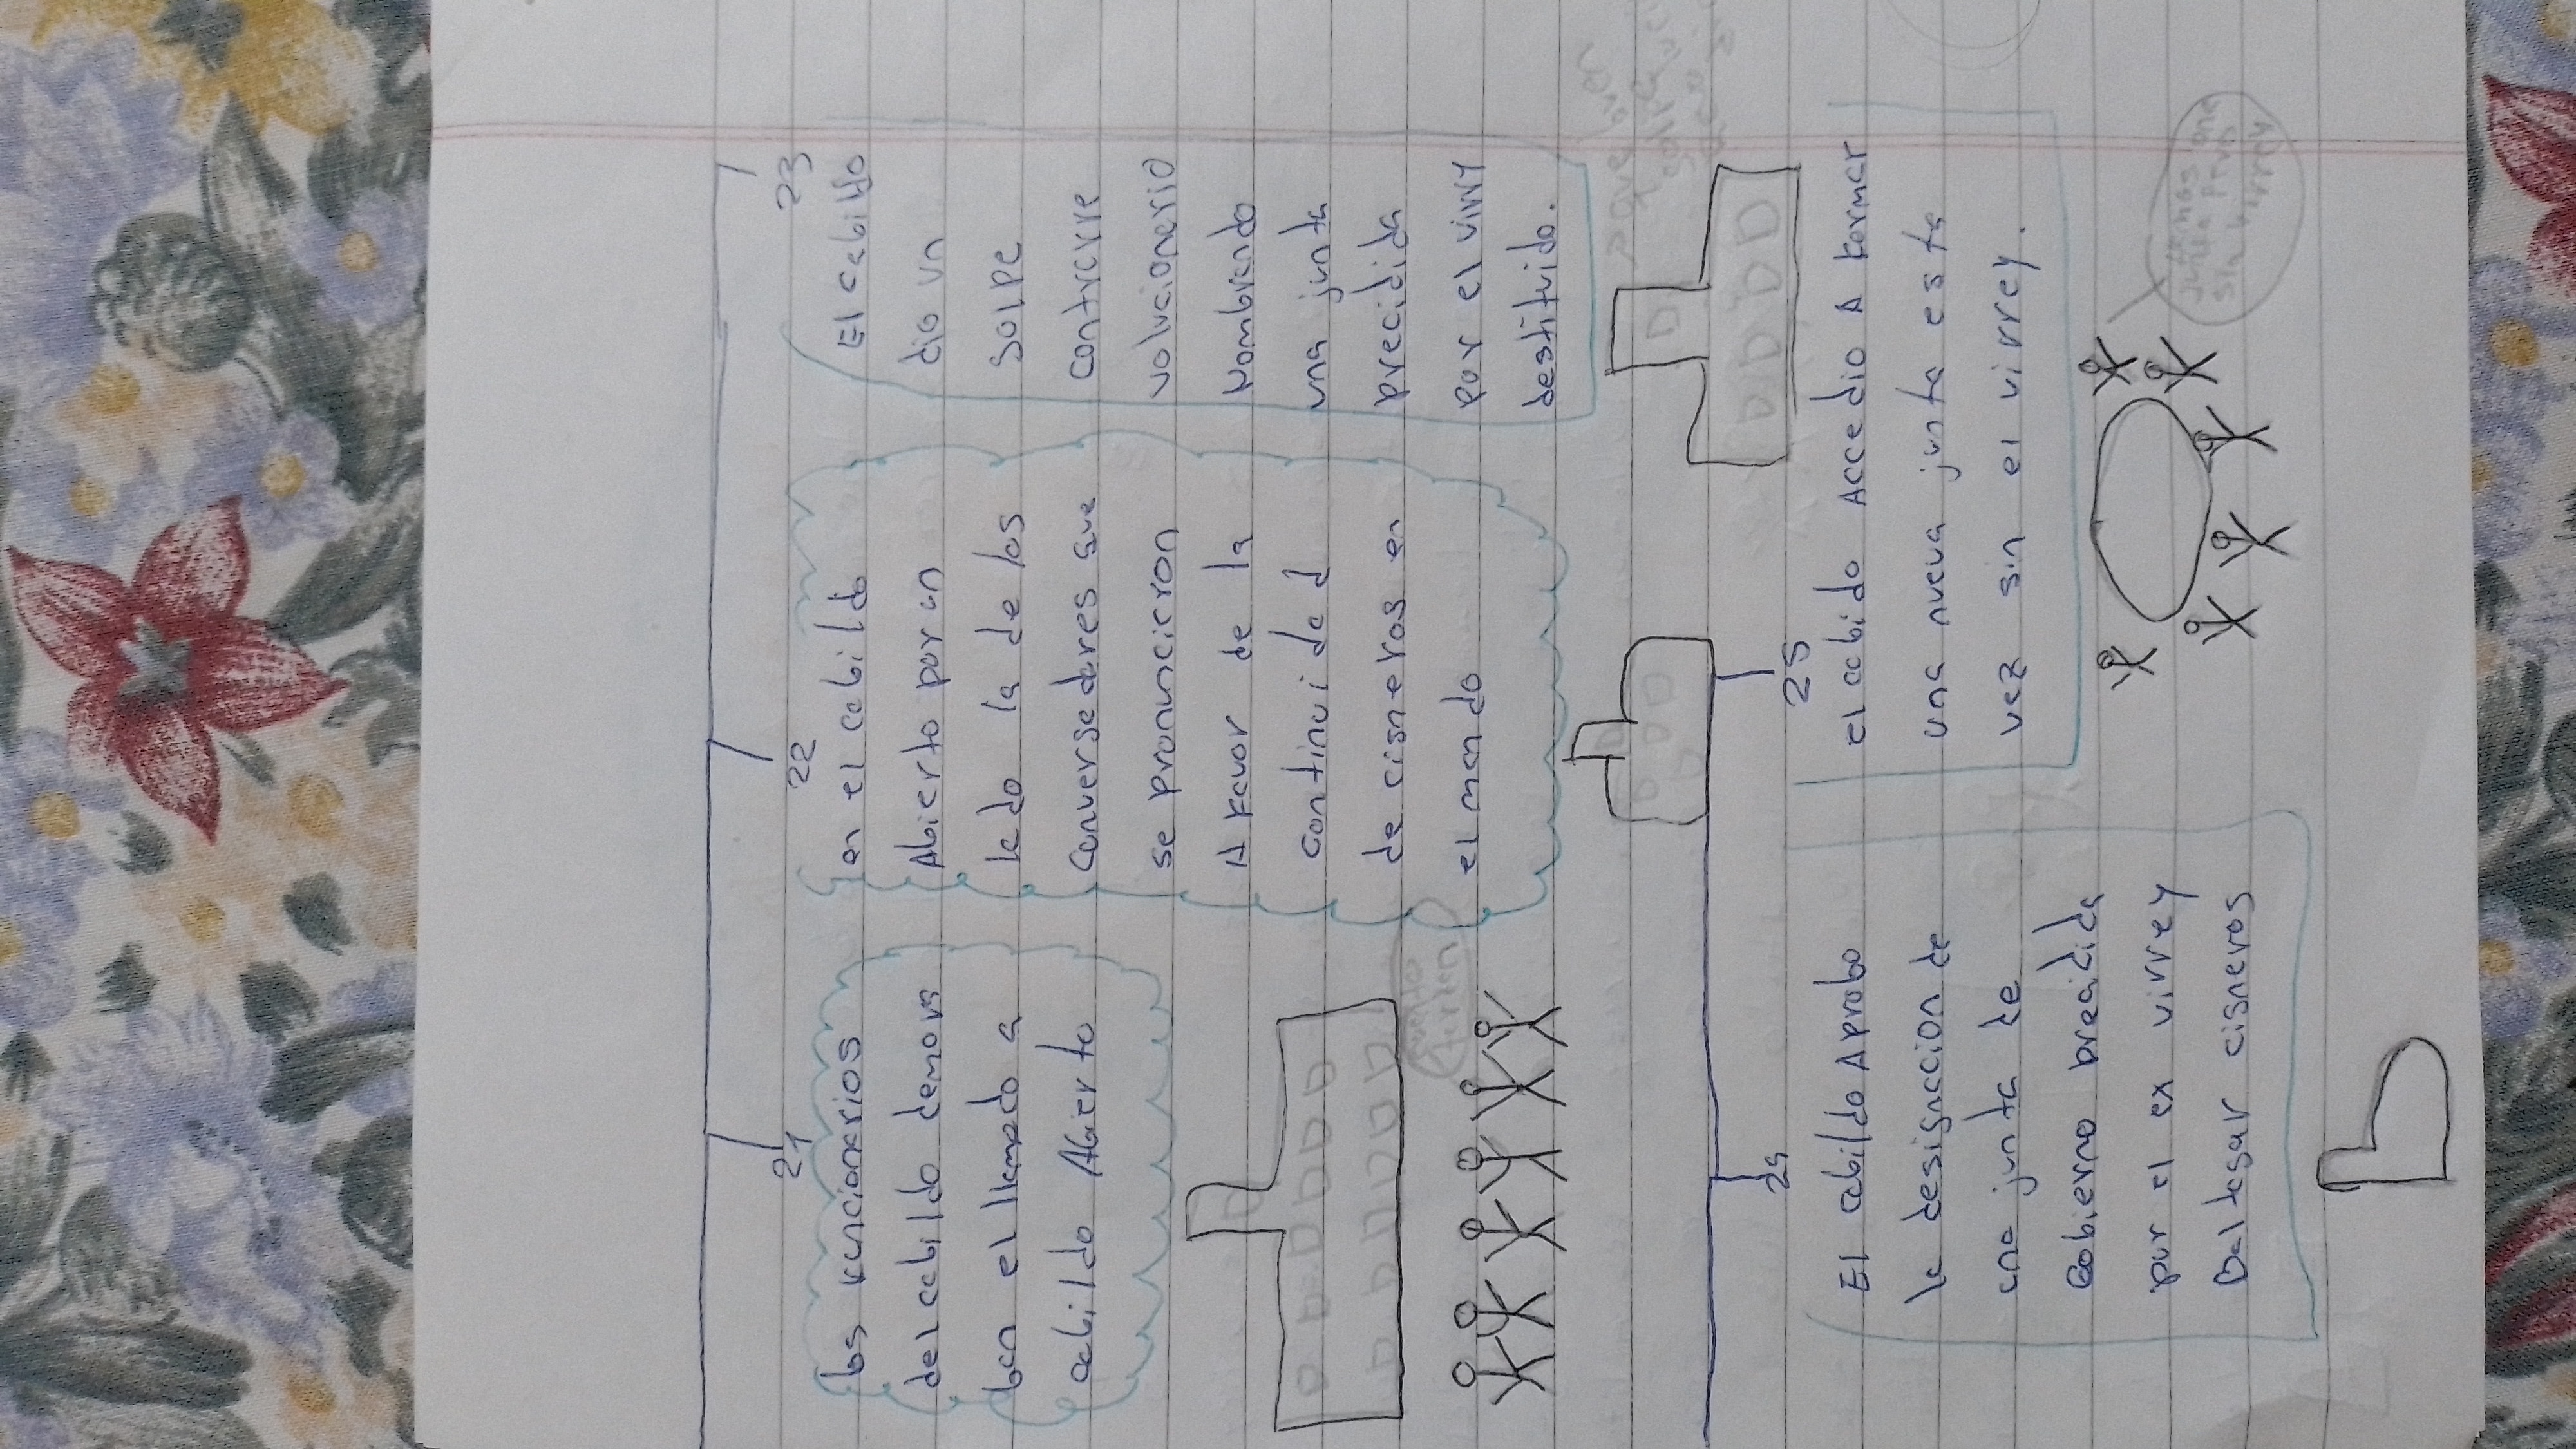 21
los funcionarios
del cabildo demora
ban el llamado a
cabildo Abierto
22
en el cabildo
Abierto por un
lado la de los
Conversadores que
se pronuncicron
A favor de la
continuidad
de cisneros en
el mando
23
El cabildo
dio un
golpe
contrarre
volucionerio
Nombrando
una junta
precidida
por el virry
destituido.
24
El cabildo Aprobo
la desisnacion de
una junta de
Gobierno precidida
por el ex virrey
Baltasar cisneros
25
el cabido Accedio A formar
una nueva junta esta
vez sin el virrey.
junta
sin virrey